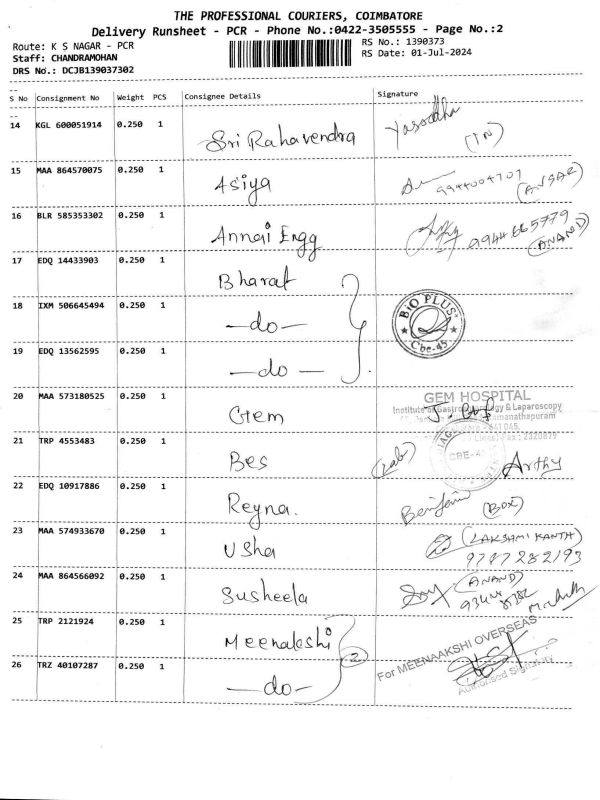 THE PROFESSIONAL COURIERS, COIMBATORE
Delivery Runsheet - PCR - Phone No.:0422-3505555 - Page No.:2
Route: K S NAGAR - PCR
RS No.: 1390373
Staff: CHANDRAMOHAN
RS Date: 01-Jul-2024
DRS No.: DCJB139037302
S No Consignment No Weight PCS Consignee Details Signature
14 KGL 600051914 0.250 1 Sri Rahavendra Yasodha (IN)
15 MAA 864570075 0.250 1 Asiya 9944004707 (ANSAR)
16 BLR 585353302 0.250 1 Annai Engg 9944665779 (ANAND)
17 EDQ 14433903 0.250 1 Bharat
18 IXM 506645494 0.250 1 -do- BIO PLUS Cbe-45
19 EDQ 13562595 0.250 1 -do-
20 MAA 573180525 0.250 1 Gem GEM HOSPITAL
Institute of Gastroenterology & Laparoscopy
Ramanathapuram
641045
Fax: 2320879
21 TRP 4553483 0.250 1 Bes (Lab) CBE-45 Arthy
22 EDQ 10917886 0.250 1 Reyna. (BOX)
23 MAA 574933670 0.250 1 Usha (LAKSHMI KANTH)
9787282193
24 MAA 864566092 0.250 1 Susheela (ANAND)
25 TRP 2121924 0.250 1 Meenakshi 2 For MEENAAKSHI OVERSEAS
26 TRZ 40107287 0.250 1 -do- Authorised Signatory